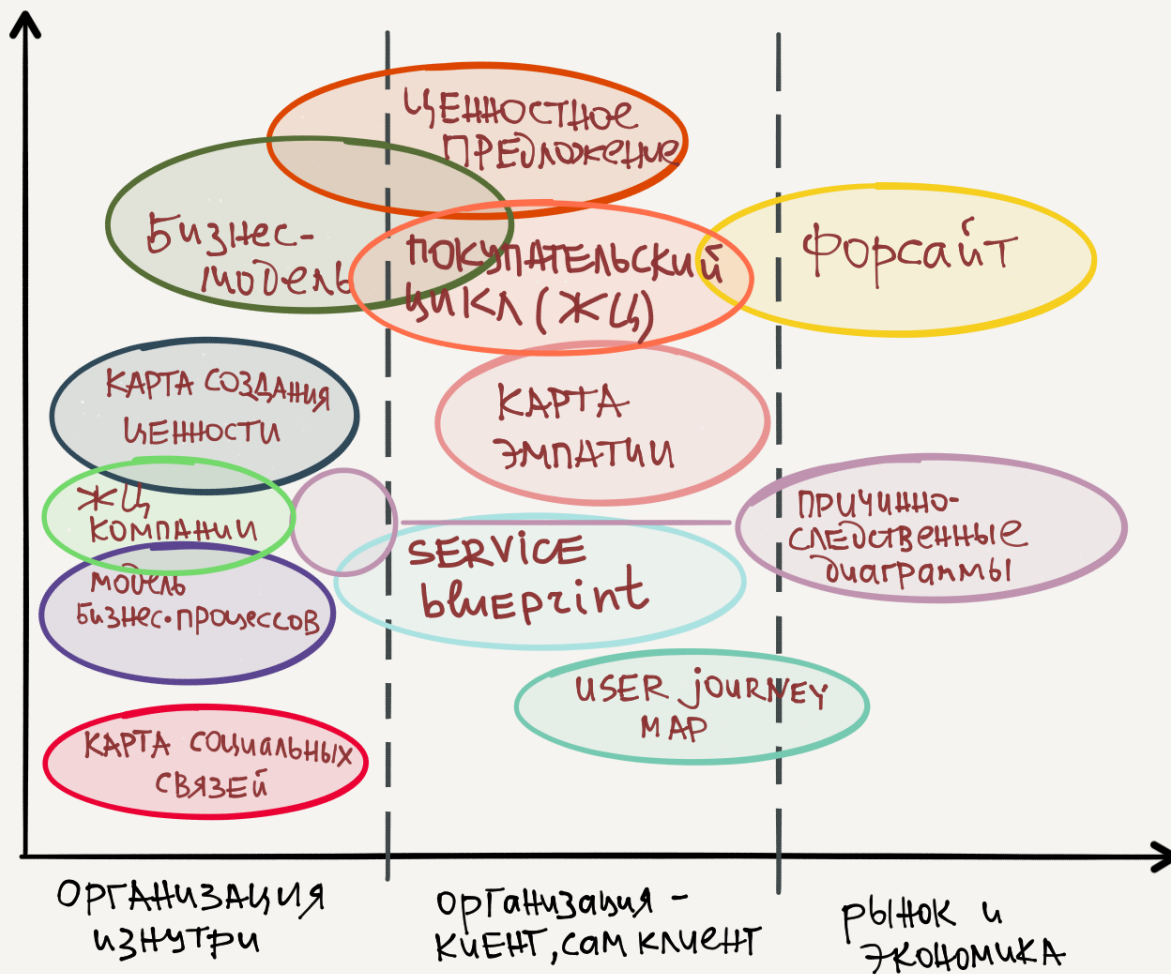 ЦЕННОСТНОЕ
ПРЕДЛОЖЕНИЕ
БИЗНЕС-
МОДЕЛЬ
ПОКУПАТЕЛЬСКИЙ
ЦИКЛ (ЖЦ)
ФОРСАЙТ
КАРТА СОЗДАНИЯ
ЦЕННОСТИ
КАРТА
ЭМПАТИИ
ЖЦ
КОМПАНИИ
ПРИЧИННО-
СЛЕДСТВЕННЫЕ
ДИАГРАММЫ
SERVICE
blueprint
МОДЕЛЬ
БИЗНЕС-ПРОЦЕССОВ
USER JOURNEY
MAP
КАРТА СОЦИАЛЬНЫХ
СВЯЗЕЙ
ОРГАНИЗАЦИЯ
ИЗНУТРИ
ОРГАНИЗАЦИЯ -
КИЕНТ, САМ КЛИЕНТ
РЫНОК И
ЭКОНОМИКА